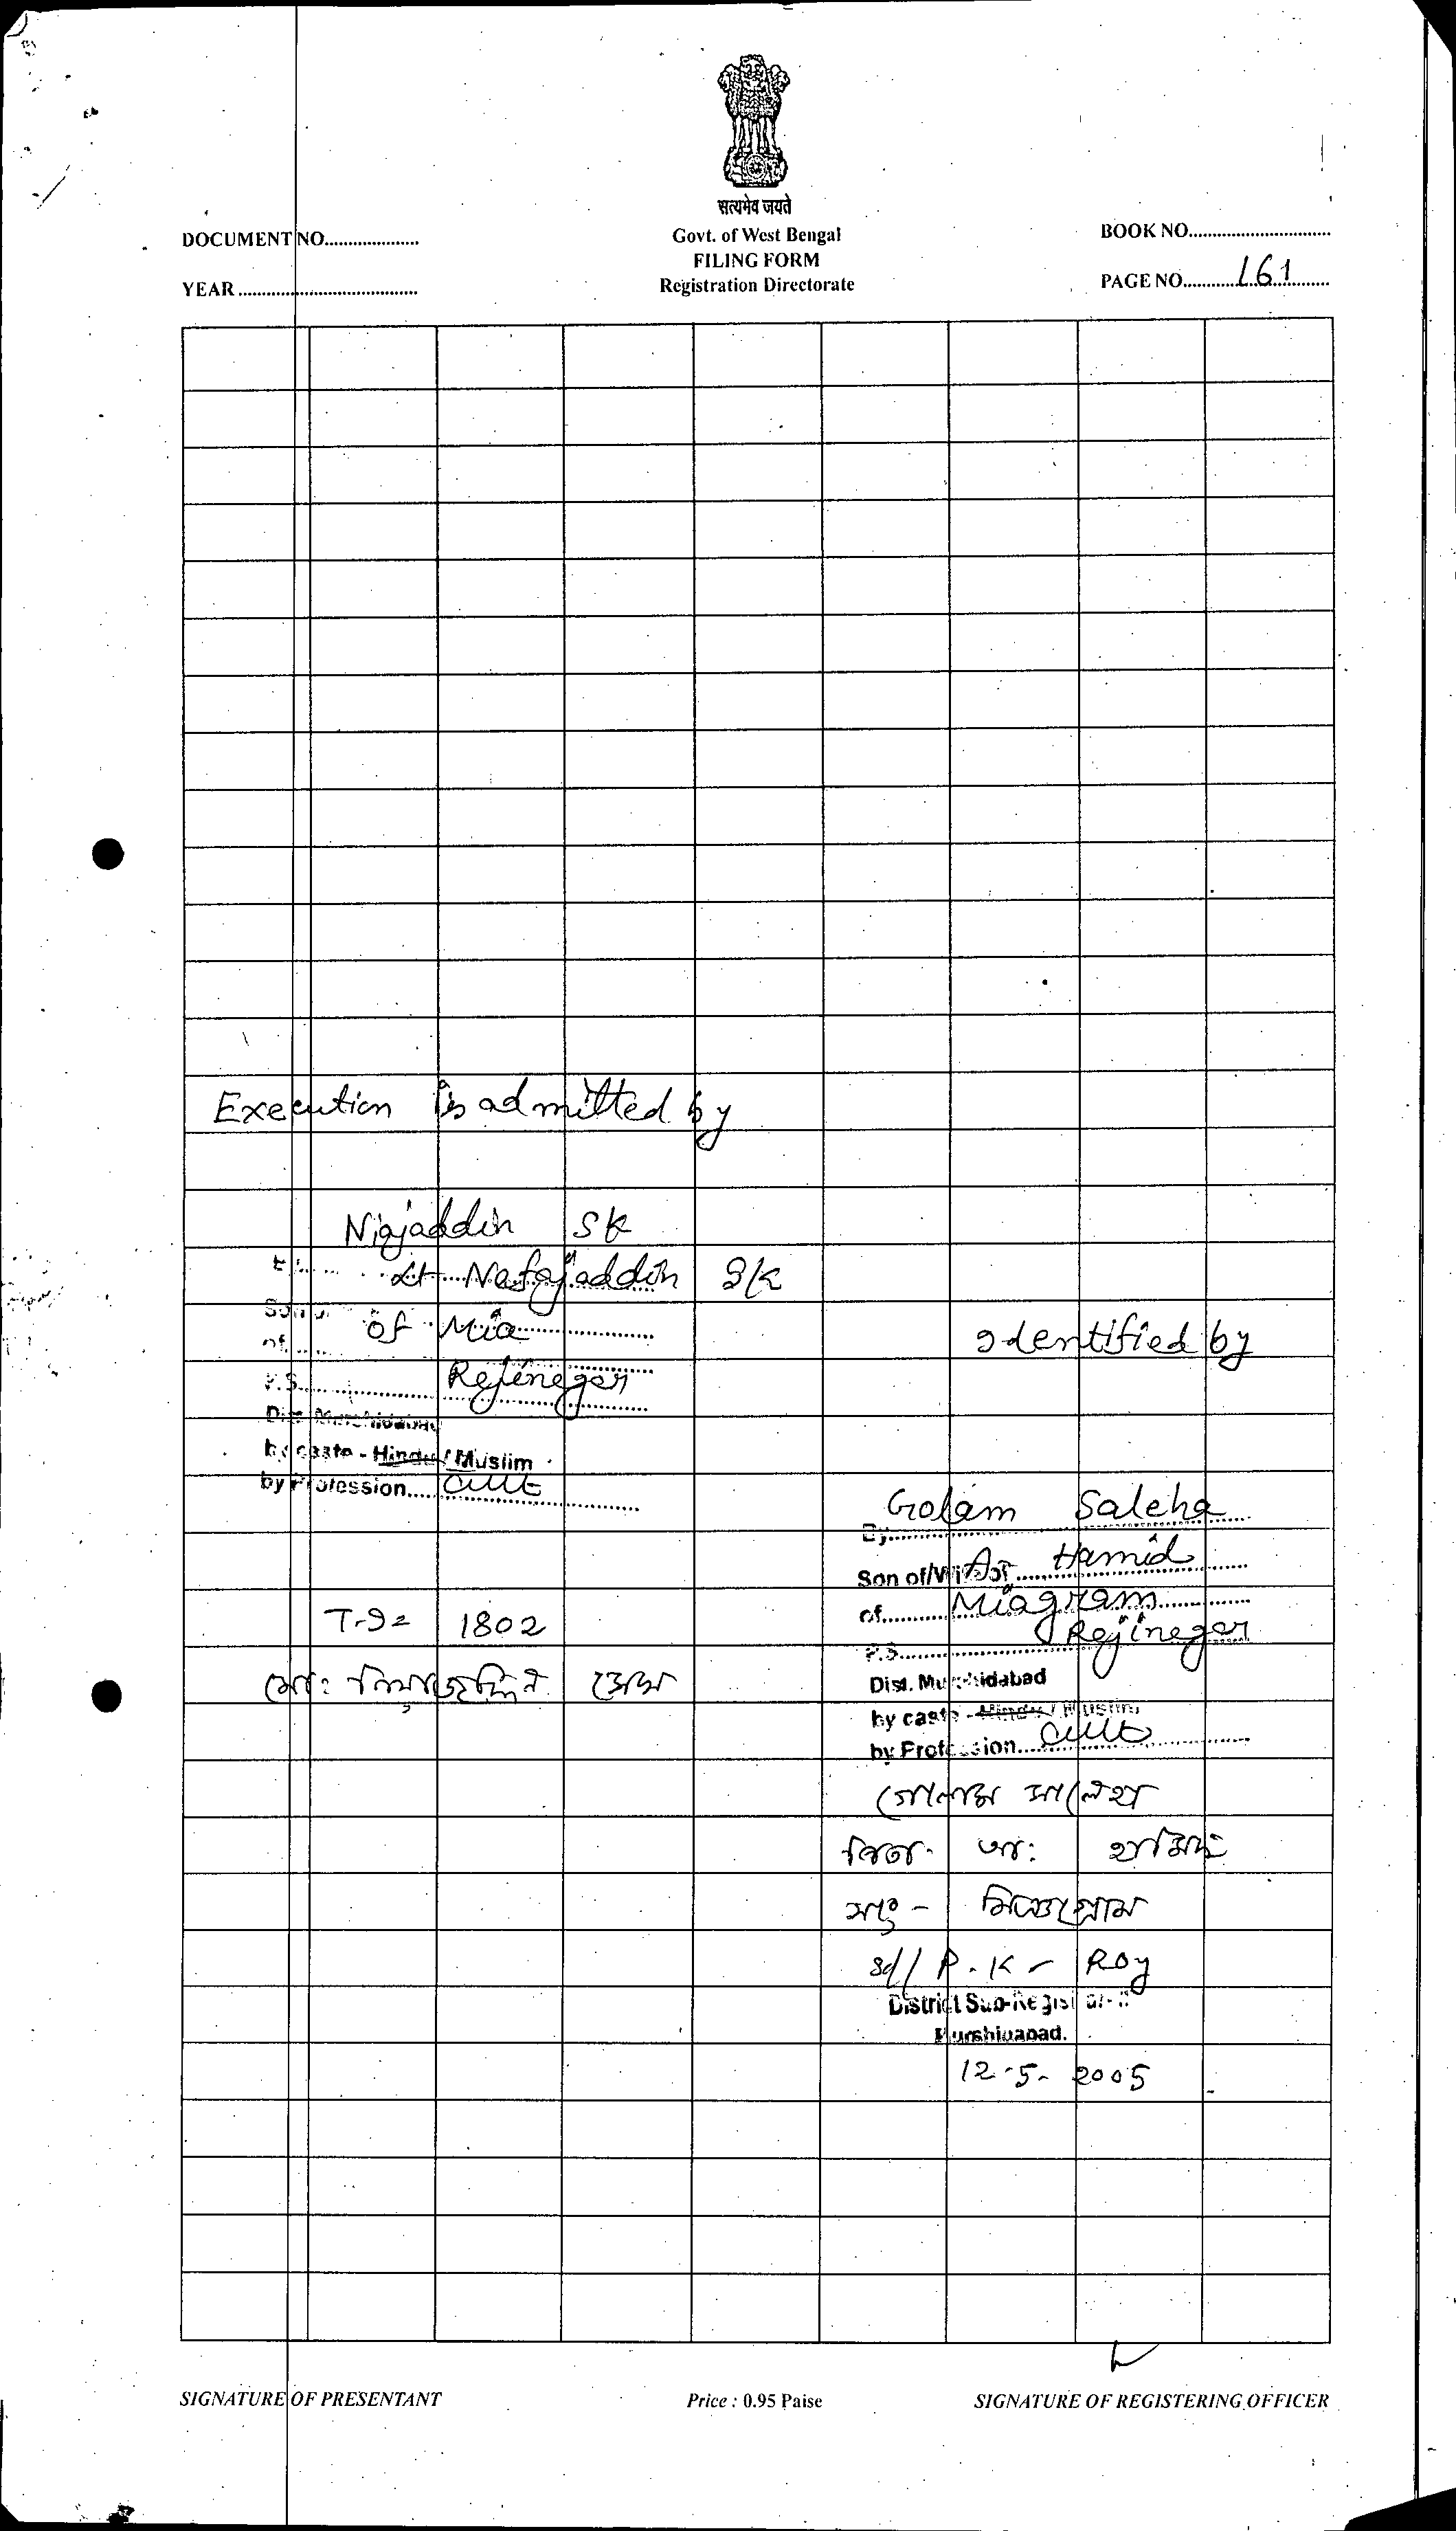 सत्यमेव जयते
DOCUMENT NO....................
Govt. of West Bengal
BOOK NO..............................
FILING FORM
YEAR ......................................
Registration Directorate
PAGE NO............161............
Execution is admitted by
Niajaddin SK
Lt Nafajaddin SK
Son of
of Mia
P.S. Rejinegar
Dist Murshidabad
by caste - Hindu / Muslim
by Profession..... Cult
Identified by
Golam Saleha
By
Son of/Wife of Ar Hamid
of Miagram
P.S. Rejinegar
Dist. Murshidabad
by caste - Hindu / Muslim
by Profession... Cult
T.I= 1802
মোঃ নিয়াজদ্দিন সেখ
গোলাম সালেহা
পিতা- আঃ হামিদ
সাং - মিঞাগ্রাম
Sd// P. K - Roy
District Sub-Registrar-II
Murshidabad.
12-5-2005
SIGNATURE OF PRESENTANT
Price : 0.95 Paise
SIGNATURE OF REGISTERING OFFICER